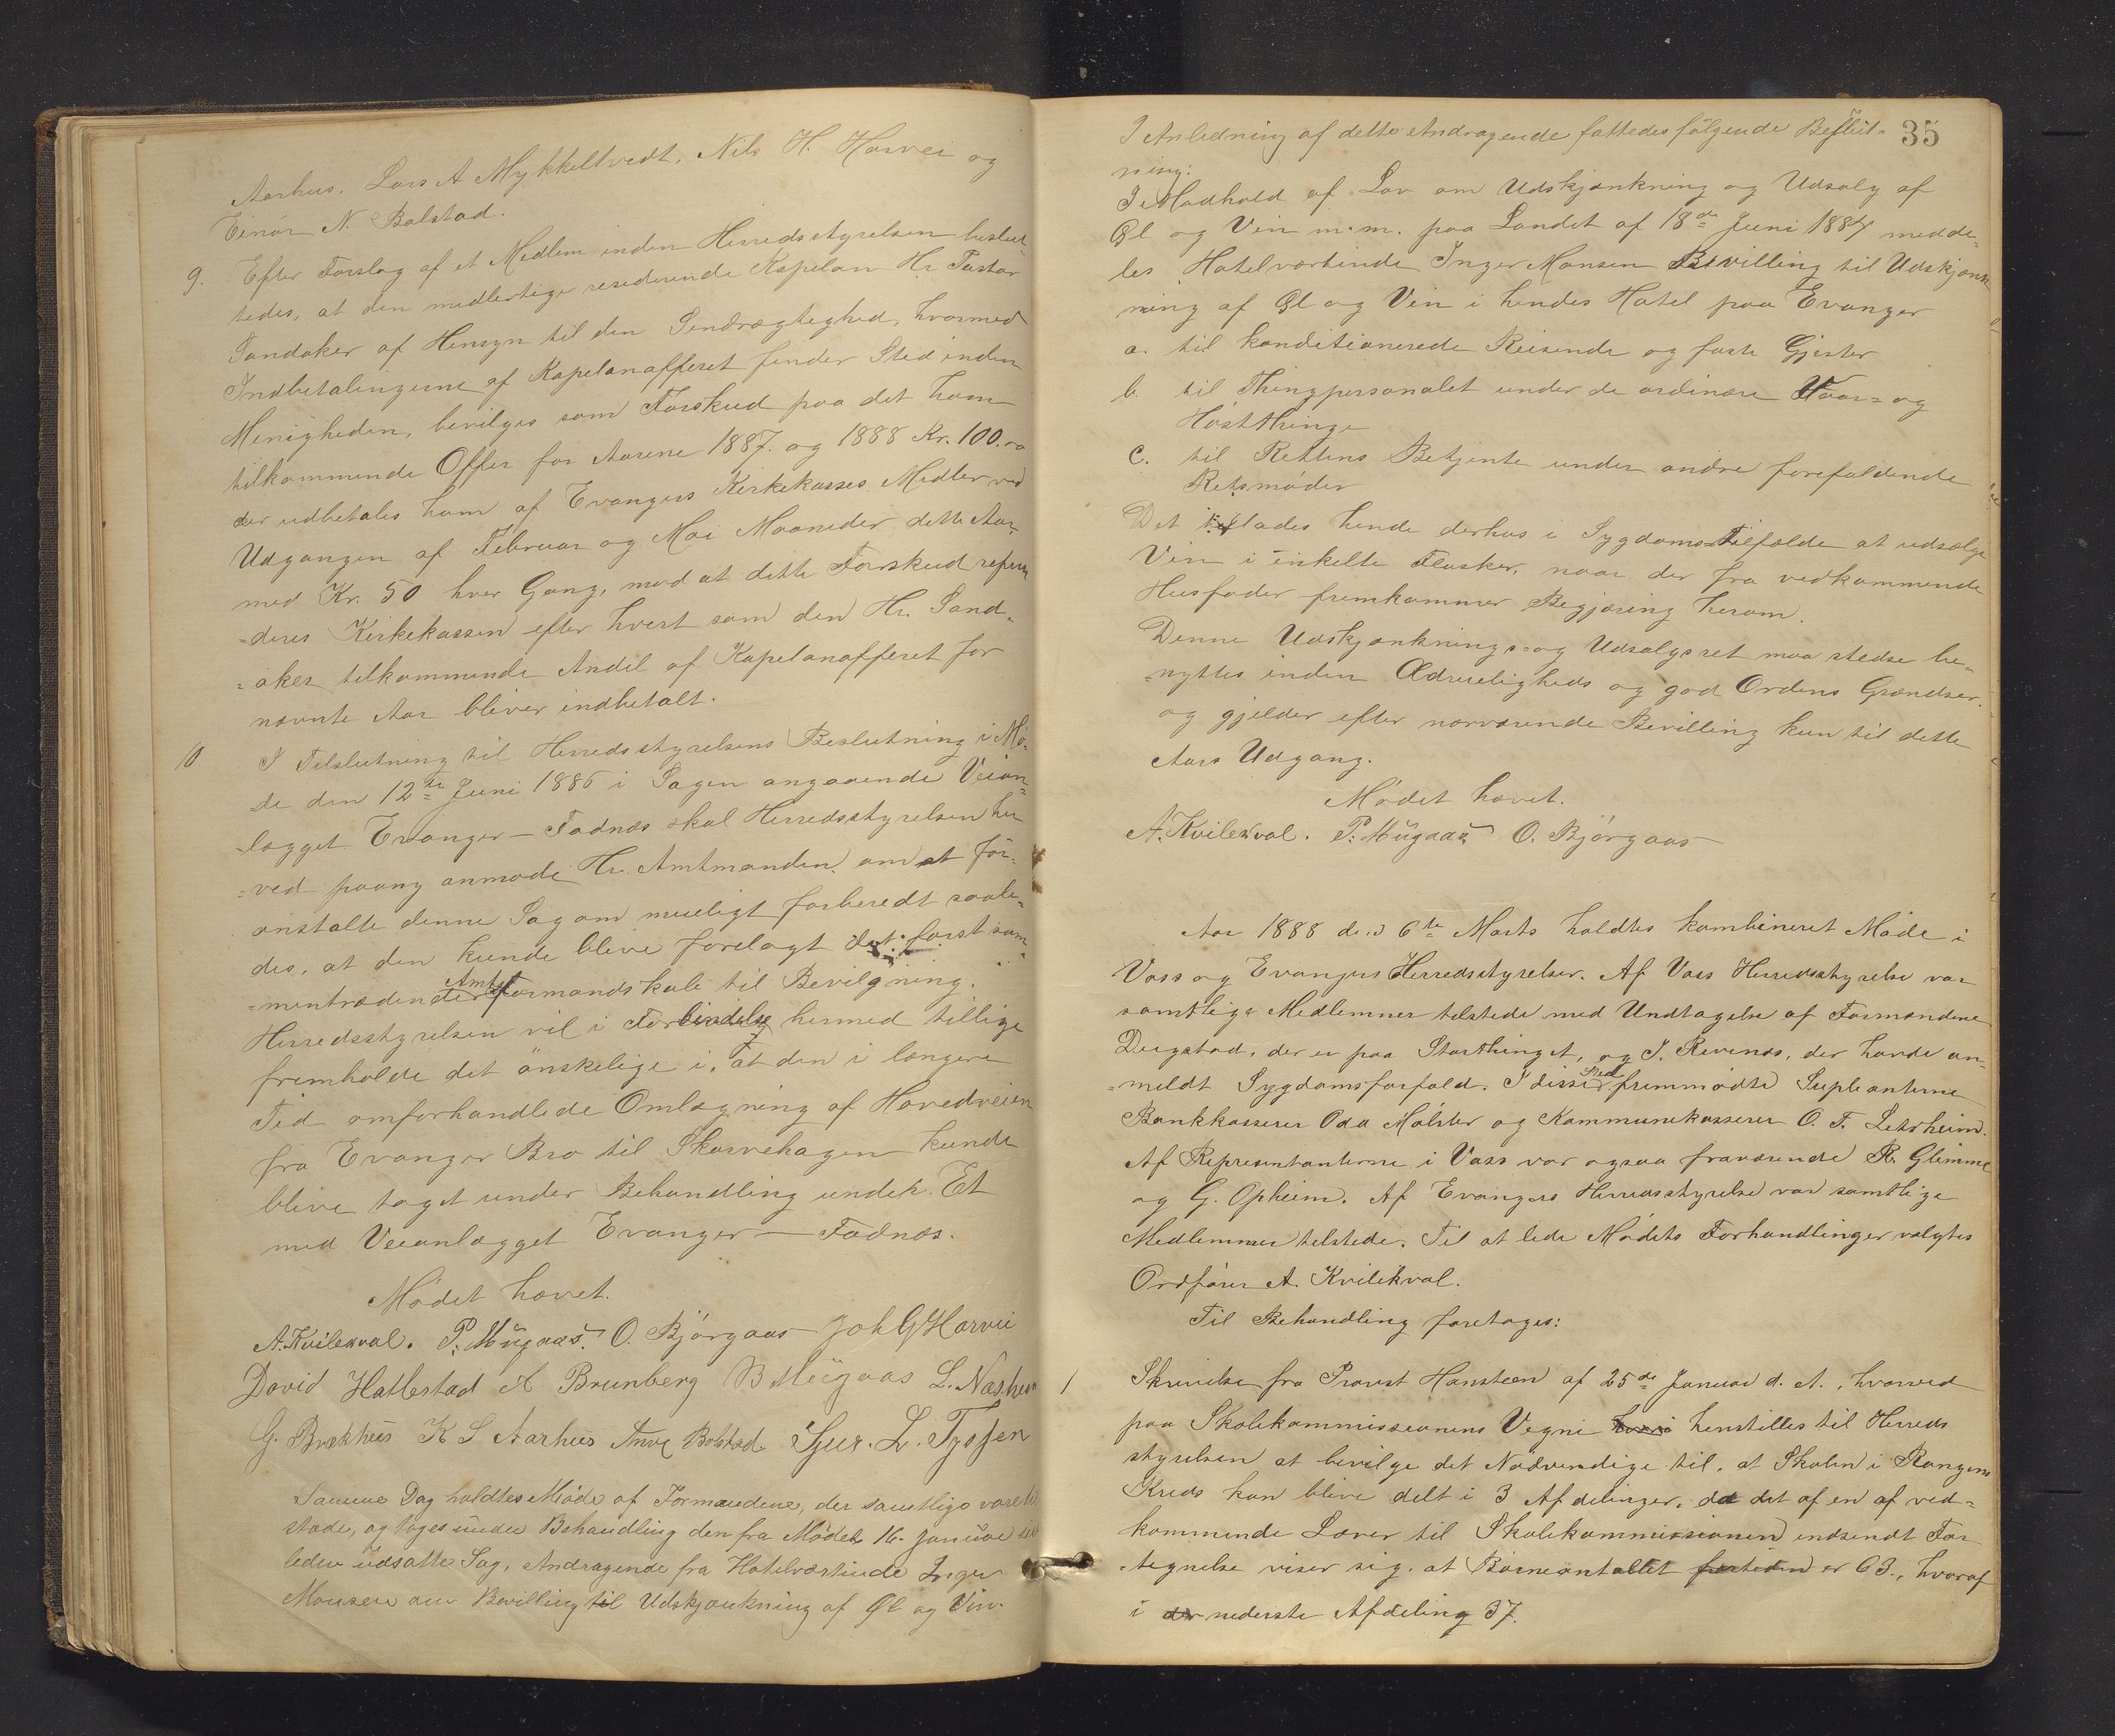 Aarhus. Lars A Mykkeltvedt. Nils H. Horvei og
Einar N. Bolstad.
9. Efter Forslag af et Medlem inden Herredsstyrelsen beslut-
tedes, at den midlertige residerende Kapelan Hr Pastor
Sandaker af Hensyn til den Sendrægtighed, hvormed
Indbetalingerne af Kapelanofferet finder Sted inden
Menigheden, bevilges som Forskud paa det ham
tilkommende Offer for Aarene 1887. og 1888 Kr. 100.
der udbetales ham af Evangers Kirkekasses Midler ved
Udgangen af Februar og Mai Maaneder dette Aar.
med Kr. 50 hver Gang, mod at dette Forskud refun
=deres Kirkekassen efter hvert som den Hr. Sand-
=aker tilkommende Andel af Kapelanofferet for
nævnte Aar bliver indbetalt.
10 I Tilslutning til Herredsstyrelsens Beslutning i Mø-
de den 12te Juni 1886 i Sagen angaaende Veian-
lægget Evanger — Fadnæs skal Herredsstyrelsen her
=ved paany anmode Hr. Amtmanden om at for-
anstalte denne Sag om mueligt forberedt saale-
des, at den kunde blive forelagt det først sam-
=mentrædende Amtsformandskab til Bevilgning.
Herredsstyrelsen vil i Forbindelse hermed tillige
fremholde det ønskelige i, at den i længere
Tid omforhandlede Omlægning af Hovedveien
fra Evanger Bro til Skorvehagen kunde
blive taget under Behandling under Et
med Veianlægget Evanger — Fadnæs.
Mødet hævet.
A. Kvilekval. P. Mügaas. O. Bjørgaas Joh G Horvei
David Hatlestad A Brunberg B Mügaas L. Næshei
G. Brækhus K S Aarhus Anve Bolstad Sjur. L. Tyssen
Samme Dag holdtes Møde af Formændene, der samtlige vare til
stæde, og toges under Behandling den fra Mødet 16. Januar sid
leden udsatte Sag, Andragende fra Hotelværtinde Inger
Monsen om Bevilling til Udskjænkning af Øl og Vin.
35
I Anledning af dette Andragende fattedes følgende Beslut-
ning:
I Medhold af Lov om Udskjænkning og Udsalg af
Øl og Vin m. m. paa Landet af 18de Juni 1884 medde-
les Hotelværtinde Inger Monsen Bevilling til Udskjænk
ning af Øl og Vin i hendes Hotel paa Evanger
a. til konditionerede Reisende og faste Gjester
b. til Thingpersonalet under de ordinære Vaar= og
Høstthinge
c. til Rettens Betjente under andre forefaldende
Retsmøder
Det tillades hende derhos i Sygdoms Tilfælde at udsælge
Vin i enkelte Flasker, naar der fra vedkommende
Husfader fremkommer Begjæring herom.
Denne Udskjænknings= og Udsalgsret maa stedse be-
=nyttes inden Ædrueligheds og god Ordens Grændser.
og gjelder efter nærværende Bevilling kun til dette
Aars Udgang.
Mødet hævet.
A. Kvilekval. P. Mügaas O. Bjørgaas
Aar 1888 den 6te Marts holdtes kombineret Møde i
Voss og Evangers Herredsstyrelser. Af Voss Herredsstyrelse var
samtlige Medlemmer tilstede med Undtagelse af Formændene
Dugstad, der er paa Storthinget, og J. Revenæs, der havde an-
=meldt Sygdomsforfald. I disses Sted fremmødte Supleanterne
Bankkasserer Oda Mølster og Kommunekasserer O. F. Lirheim.
Af Repræsentanterne i Voss var ogsaa fraværende R. Glimme
og G. Opheim. Af Evangers Herredsstyrelse var samtlige
Medlemmer tilstede. Til at lede Mødets Forhandlinger valgtes
Ordfører A. Kvilekval.
Til Behandling foretoges:
1 Skrivelse fra Provst Hansteen af 25de Januar d. A., hvorved
paa Skolekommissionens Vegne henstilles til Herreds
styrelsen at bevilge det Nødvendige til, at Skolen i Rongens
Kreds kan blive delt i 3 Afdelinger, da det af en af ved=
kommende Lærer til Skolekommissionen indsendt For
tegnelse viser sig, at Børneantallet fortiden er 63., hvoraf
i der nederste Afdeling 37.